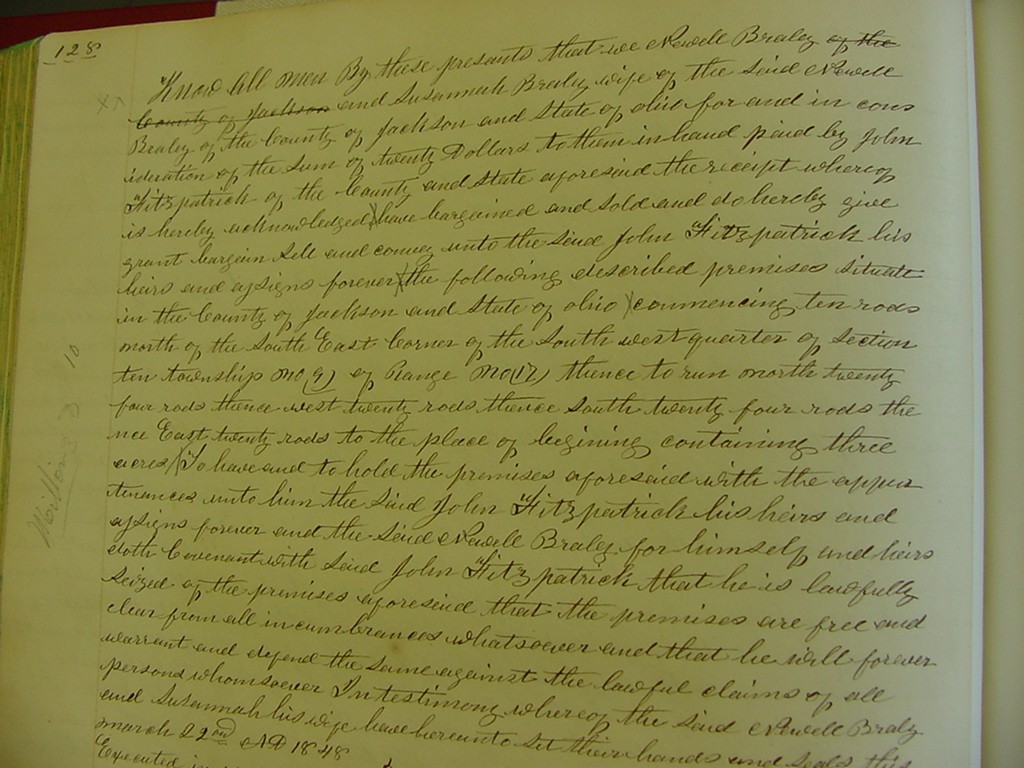 128
Know All men By these presents that we Newell Braley of the
County of Jackson and Susannah Braley wife of the Said Newell
Braley of the County of Jackson and State of ohio for and in cons
ideration of the Sum of twenty Dollars to them in hand paid by John
Fitzpatrick of the County and State aforesaid the receipt whereof
is hereby acknowledged have bargained and Sold and do hereby give
grant bargain Sell and convey unto the Said John Fitzpatrick his
heirs and assigns forever the following described premises Situate
in the County of Jackson and State of ohio commencing ten rods
north of the South East Corner of the South west quarter of Section
ten township No (9) of Range No (17) thence to run north twenty
four rods thence west twenty rods thence South twenty four rods the
nce East twenty rods to the place of begining containing three
acres To have and to hold the premises aforesaid with the appur
tenances unto him the Said John Fitzpatrick his heirs and
assigns forever and the Said Newell Braley for himself and heirs
doth Covenant with Said John Fitzpatrick that he is lawfully
Seized of the premises aforesaid that the premises are free and
clear from all incumbrances whatsoever and that he will forever
warrant and defend the Same against the lawful claims of all
persons whomsoever In testimony whereof the Said Newell Braley
and Susannah his wife have hereunto Set their hands and Seals this
march 22nd AD 1848
Executed in
10